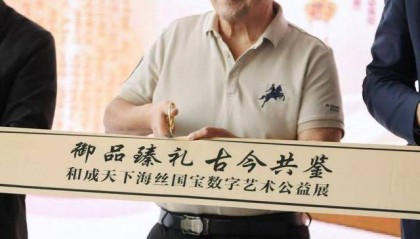 御品臻礼 古今共鉴
和成天下海丝国宝数字艺术公益展